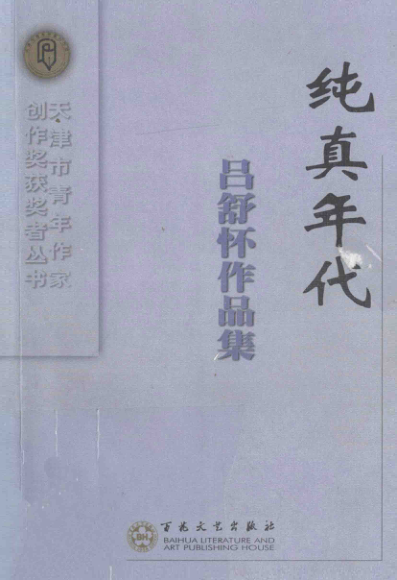 纯真年代
吕舒怀作品集
天津市青年作家
创作奖获奖者丛书
百花文艺出版社
BAIHUA LITERATURE AND
ART PUBLISHING HOUSE
BH